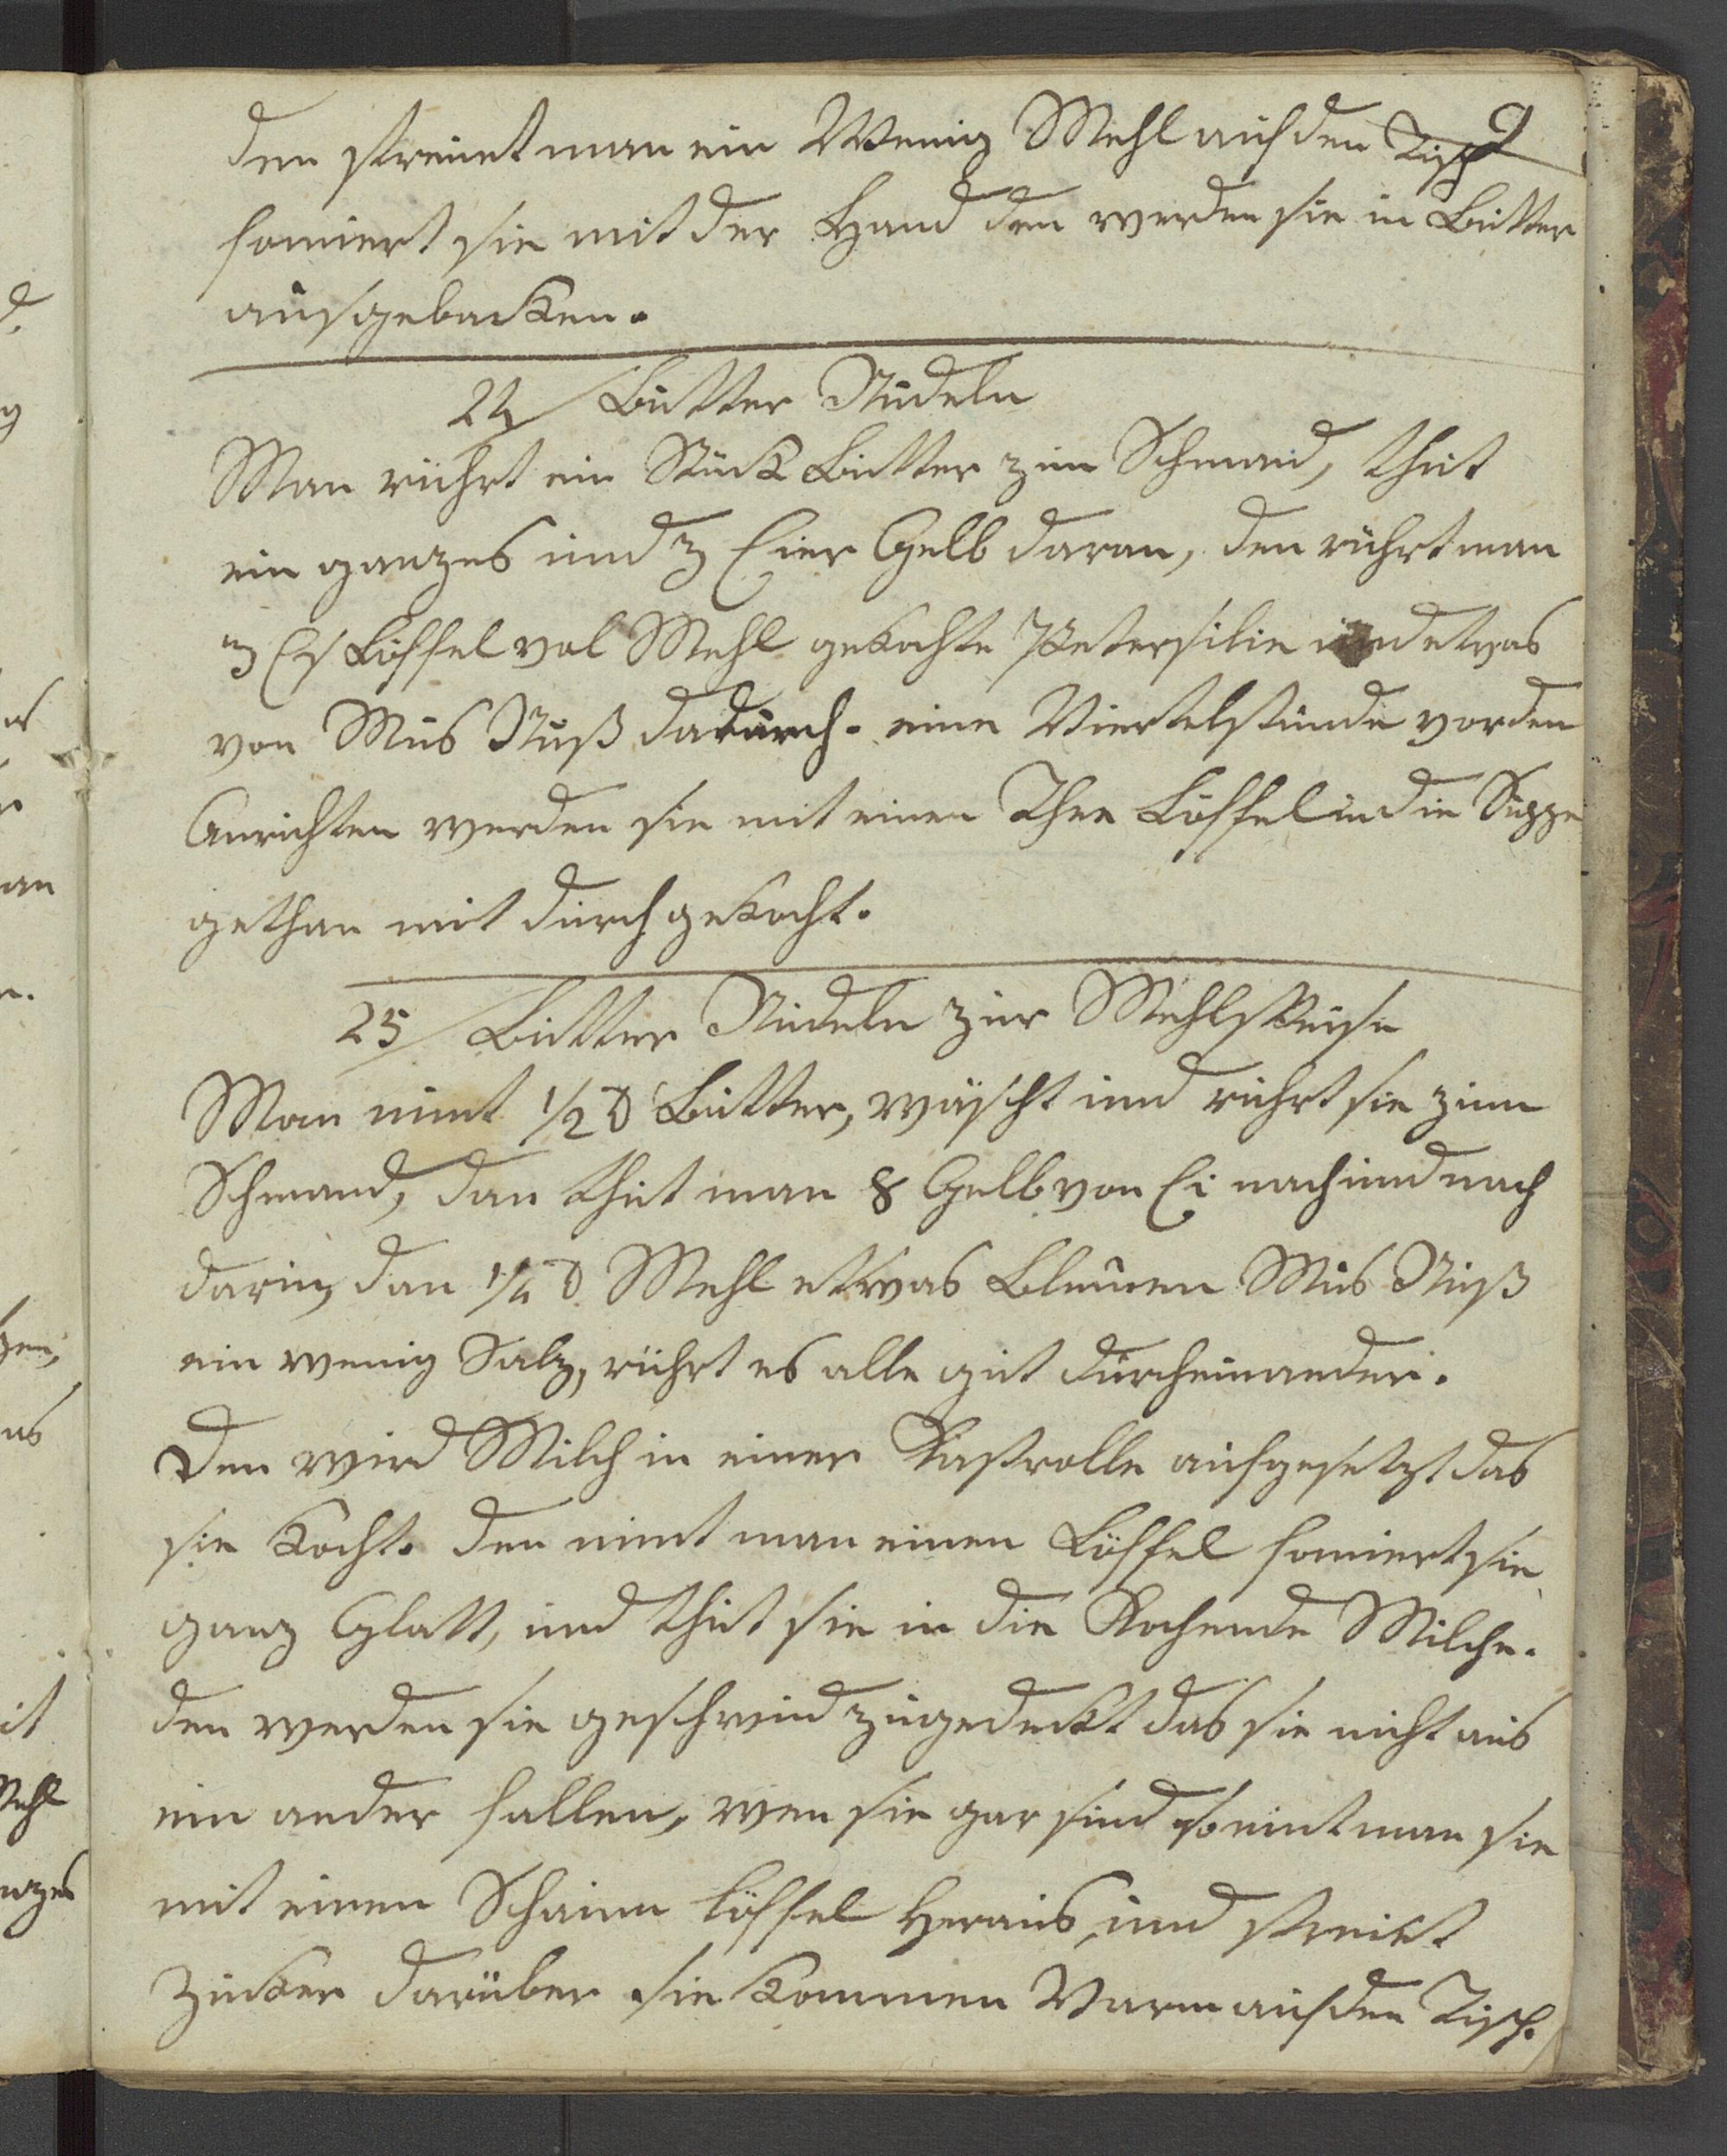 9
den streuet man ein Wenig Mehl auf den Tisch
fomiert sie mit der Hand den werden sie in Butter
ausgebacken.
24/ Butter Nudeln
Man rührt ein Stück Butter zum Schmand, thut
ein ganzes und 3 Eier Gelb daran, den rührt man
3 Eß Löffel vol Mehl gekochte Petersilie und etwas
von Mus Nuß dadurch. eine Viertelstunde vor den
Anrichten werden sie mit einen Thee Löffel in die Suppe
gethan mit durch gekocht.
25/ Butter Nudeln zur Mehlspeise
Man nimt 1/2 ℔ Butter, wäscht und rührt sie zum
Schmand, dan thut man 8 Gelb von Ei nach und nach
darin, dan 1/4 ℔ Mehl etwas Blumen Mus Nuß
ein wenig Salz, rührt es alle gut durcheinander.
Den wird Milch in einer Kastrolle aufgesetzt das
sie kocht. den nimt man einen Löffel fomiert sie
ganz Glatt, und thut sie in die Kochende Milche.
den werden sie geschwind zugedeckt das sie nicht aus
ein ander fallen, wen sie gar sind so nimt man sie
mit einen Schaum löffel Heraus, und streüet
Zucker darüber sie kommen Warm auf den Tisch.
d.
g
an
zen,
as
it
Mehl
anzes